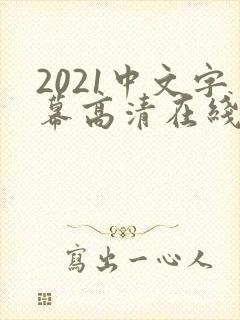 2021中文字
幕高清在綫
寫出一心人